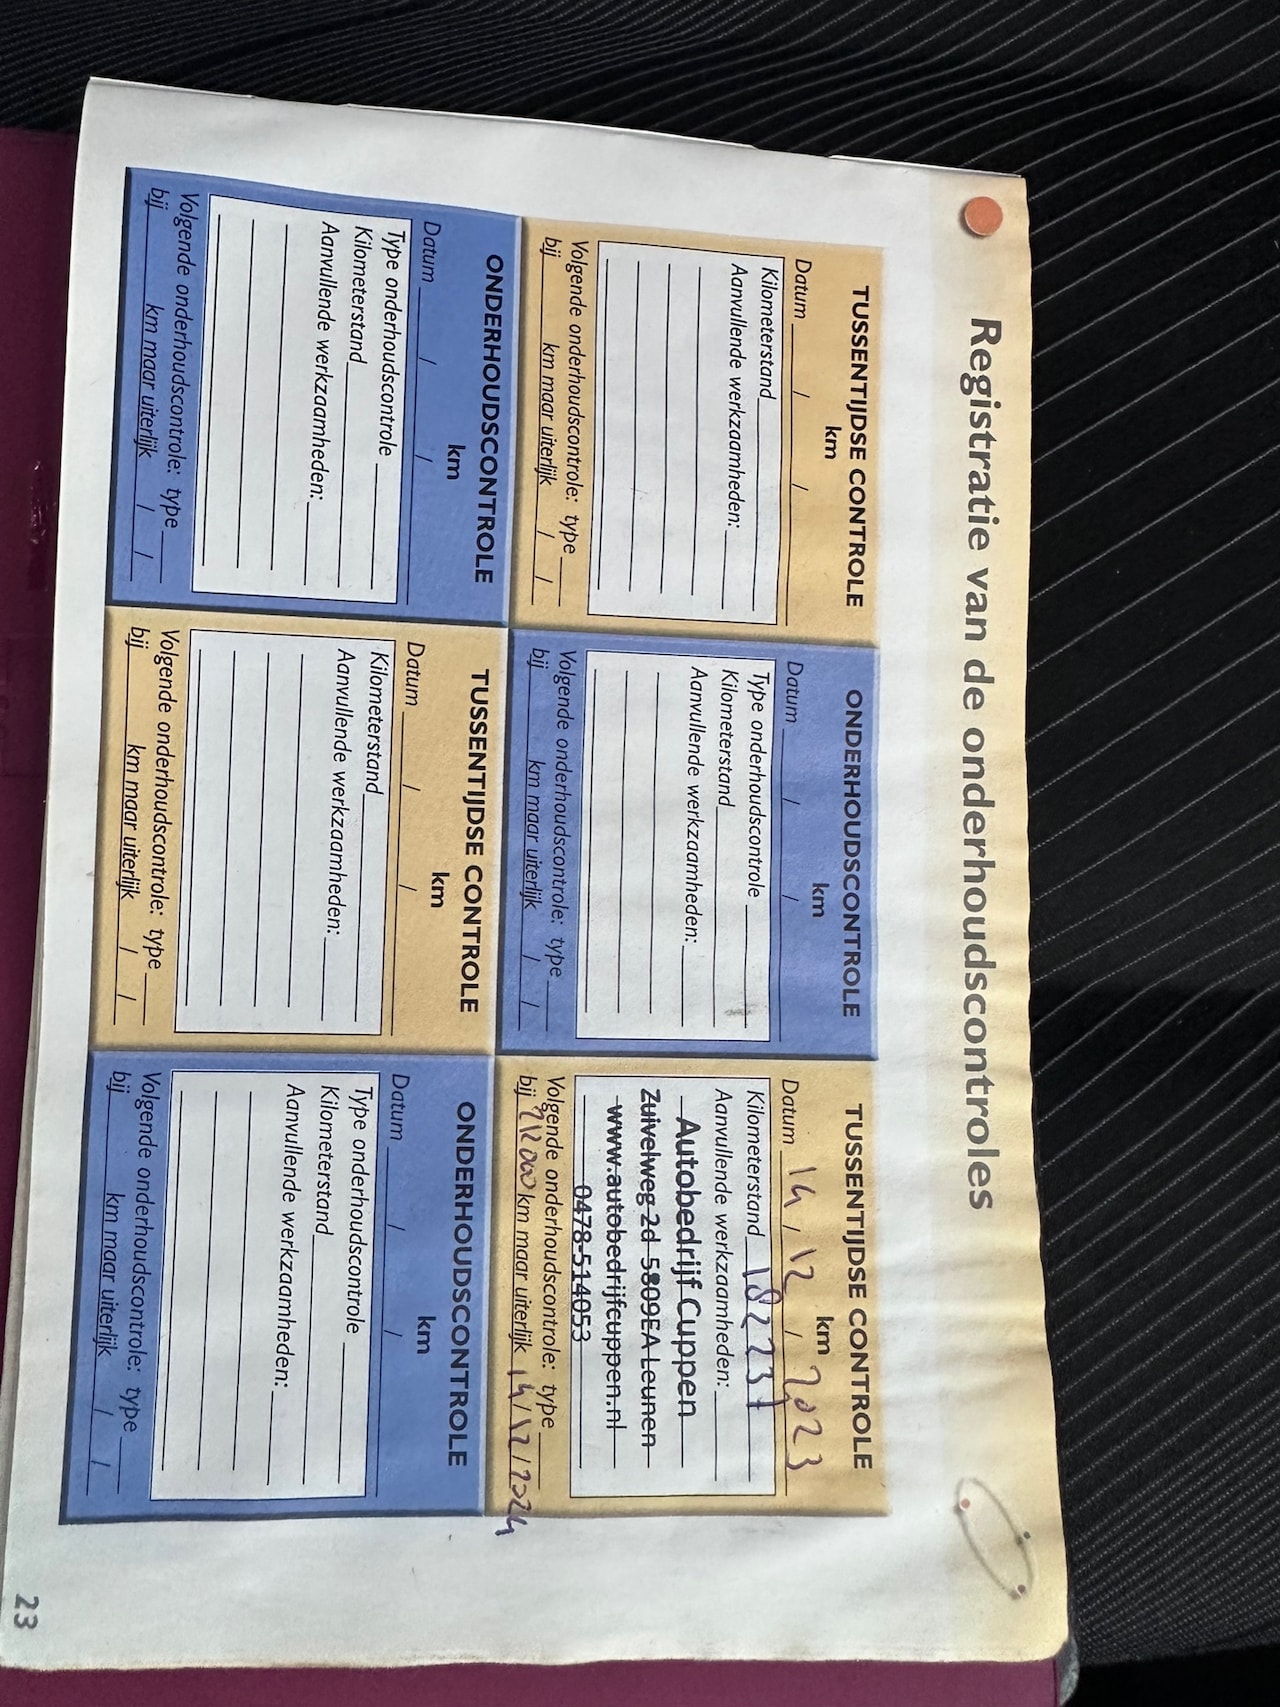 Registratie van de onderhoudscontroles
TUSSENTIJDSE CONTROLE
km
Datum / /
Kilometerstand
Aanvullende werkzaamheden:
Volgende onderhoudscontrole: type
bij km maar uiterlijk / /
ONDERHOUDSCONTROLE
km
Datum / /
Type onderhoudscontrole
Kilometerstand
Aanvullende werkzaamheden:
Volgende onderhoudscontrole: type
bij km maar uiterlijk / /
TUSSENTIJDSE CONTROLE
km
Datum 14 / 12 / 2023
Kilometerstand 182237
Aanvullende werkzaamheden:
Autobedrijf Cuppen
Zuivelweg 2d 5809EA Leunen
www.autobedrijfcuppen.nl
0478-514053
Volgende onderhoudscontrole: type
bij km maar uiterlijk 14/12/2024
ONDERHOUDSCONTROLE
km
Datum / /
Type onderhoudscontrole
Kilometerstand
Aanvullende werkzaamheden:
Volgende onderhoudscontrole: type
bij km maar uiterlijk / /
TUSSENTIJDSE CONTROLE
km
Datum / /
Kilometerstand
Aanvullende werkzaamheden:
Volgende onderhoudscontrole: type
bij km maar uiterlijk / /
ONDERHOUDSCONTROLE
km
Datum / /
Type onderhoudscontrole
Kilometerstand
Aanvullende werkzaamheden:
Volgende onderhoudscontrole: type
bij km maar uiterlijk / /
23